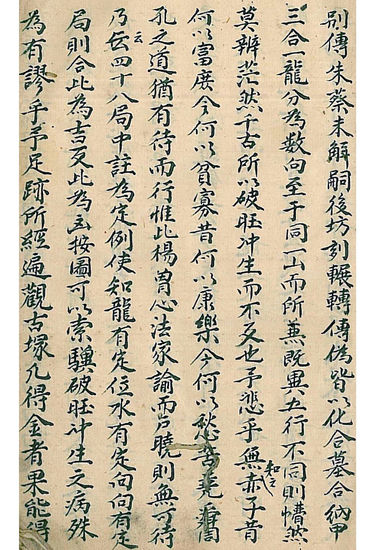 別傳朱蔡未解嗣後坊刻輾轉傳偽皆以化合墓合納甲
三合一龍分為數向至于同一山而所兼既異五行不同則懵然
莫辨茫然千古所以破旺冲生而不反也予悲乎無亦知之子昔
何以富庶今何以貧寡昔何以康樂今何以愁苦堯
孔之道猶有待而行惟此楊曾心法家諭而戶曉則無可待
乃云四十八局中註為定例使知龍有定位水有定向向有定
局則合此為吉反此為凶按圖可以索驥破旺冲生之病殊
為有謬乎予足跡所經遍觀古塚凡得金者果能得